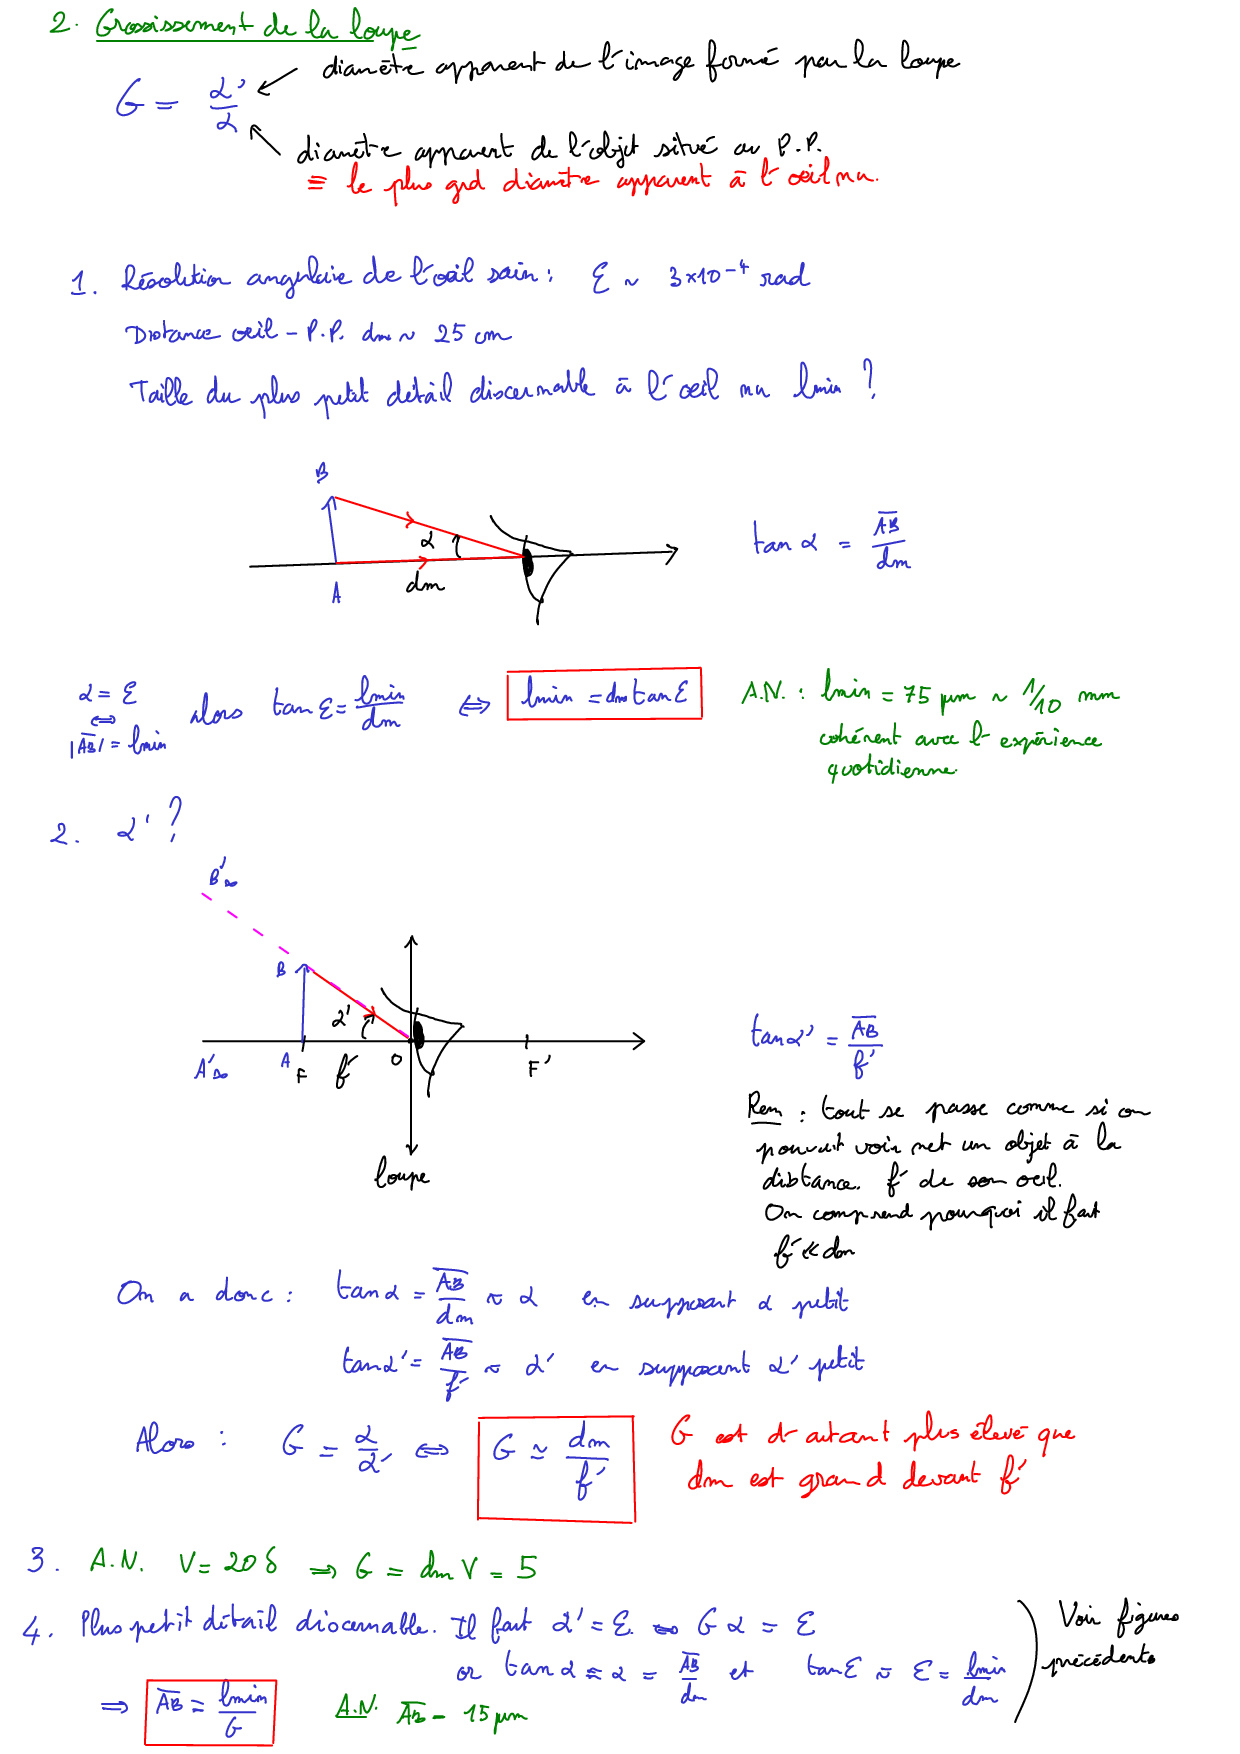 2. Grossissement de la loupe
diamètre apparent de l'image formé par la loupe
G = α'/α
diamètre apparent de l'objet situé au P.P.
≡ le plus grd diamètre apparent à l'oeil nu.
1. Résolution angulaire de l'oeil sain : ε ~ 3×10⁻⁴ rad
Distance oeil - P.P. dm ~ 25 cm
Taille du plus petit détail discernable à l'oeil nu lmin ?
B
α
A
dm
tan α = AB/dm
α = ε
⇔
|AB| = lmin
alors tan ε = lmin/dm ⇔ lmin = dm tan ε
A.N. : lmin = 75 µm ~ 1/10 mm
cohérent avec l'expérience
quotidienne.
2. α' ?
B'∞
B
α'
A'∞
A
F
f'
O
F'
loupe
tan α' = AB/f'
Rem : tout se passe comme si on
pouvait voir net un objet à la
distance f' de son oeil.
On comprend pourquoi il faut
f' ≪ dm
On a donc : tan α = AB/dm ≈ α en supposant α petit
tan α' = AB/f' ≈ α' en supposant α' petit
Alors : G = α/α' ⇔ G ≃ dm/f'
G est d'autant plus élevé que
dm est grand devant f'
3. A.N. V = 20 δ ⇒ G = dm V = 5
4. Plus petit détail discernable. Il faut α' = ε ⇔ G α = ε
or tan α ≈ α = AB/dm et tan ε ≈ ε = lmin/dm
Voir figures
précédentes
⇒ AB = lmin/G
A.N. AB = 15 µm